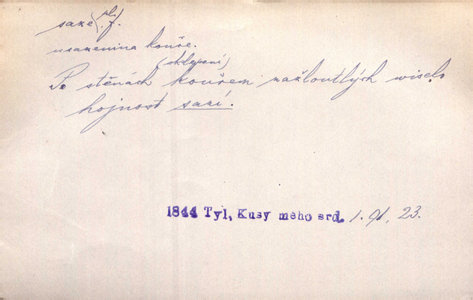 saze (pl.) f.
usazenina kouře.
(sklepení)
Po stěnách kouřem zažloutlých viselo
hojnost sazí.
1844 Tyl, Kusy mého srd. 1. 91, 23.